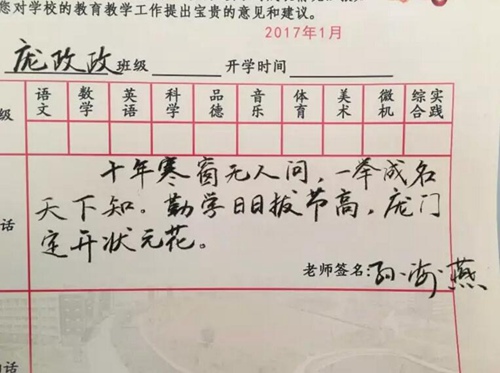 您对学校的教育教学工作提出宝贵的意见和建议。
2017年1月
庞政政班级 开学时间
级 语文 数学 英语 科学 品德 音乐 体育 美术 微机 综合实践
十年寒窗无人问，一举成名
天下知。勤学日日拔节高，庞门
定开状元花。
话
老师签名:孙海燕
的话